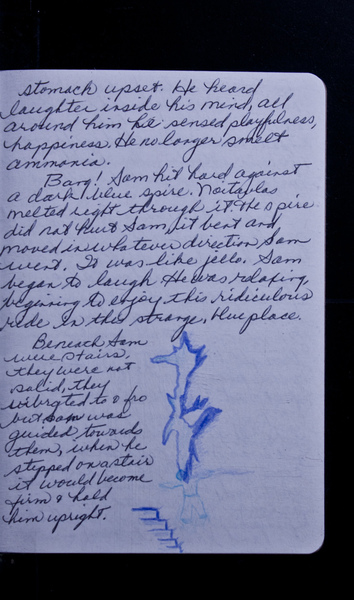 stomach upset. He heard
laughter inside his mind, all
around him he sensed playfulness,
happiness. He no longer smelt
ammonia.
Bang! Sam hit hard against
a dark blue spire. Noitavlas
melted right through it. The spire
did not hurt Sam, it bent and
moved in whatever direction Sam
went. It was like jello. Sam
began to laugh. He was relaxing,
beginning to enjoy this ridiculous
ride in this strange, blue place.
Beneath Sam
were stairs,
they were not
solid, they
vibrated to & fro
but Sam was
guided towards
them, when he
stepped on a stair
it would become
firm & hold
him upright.